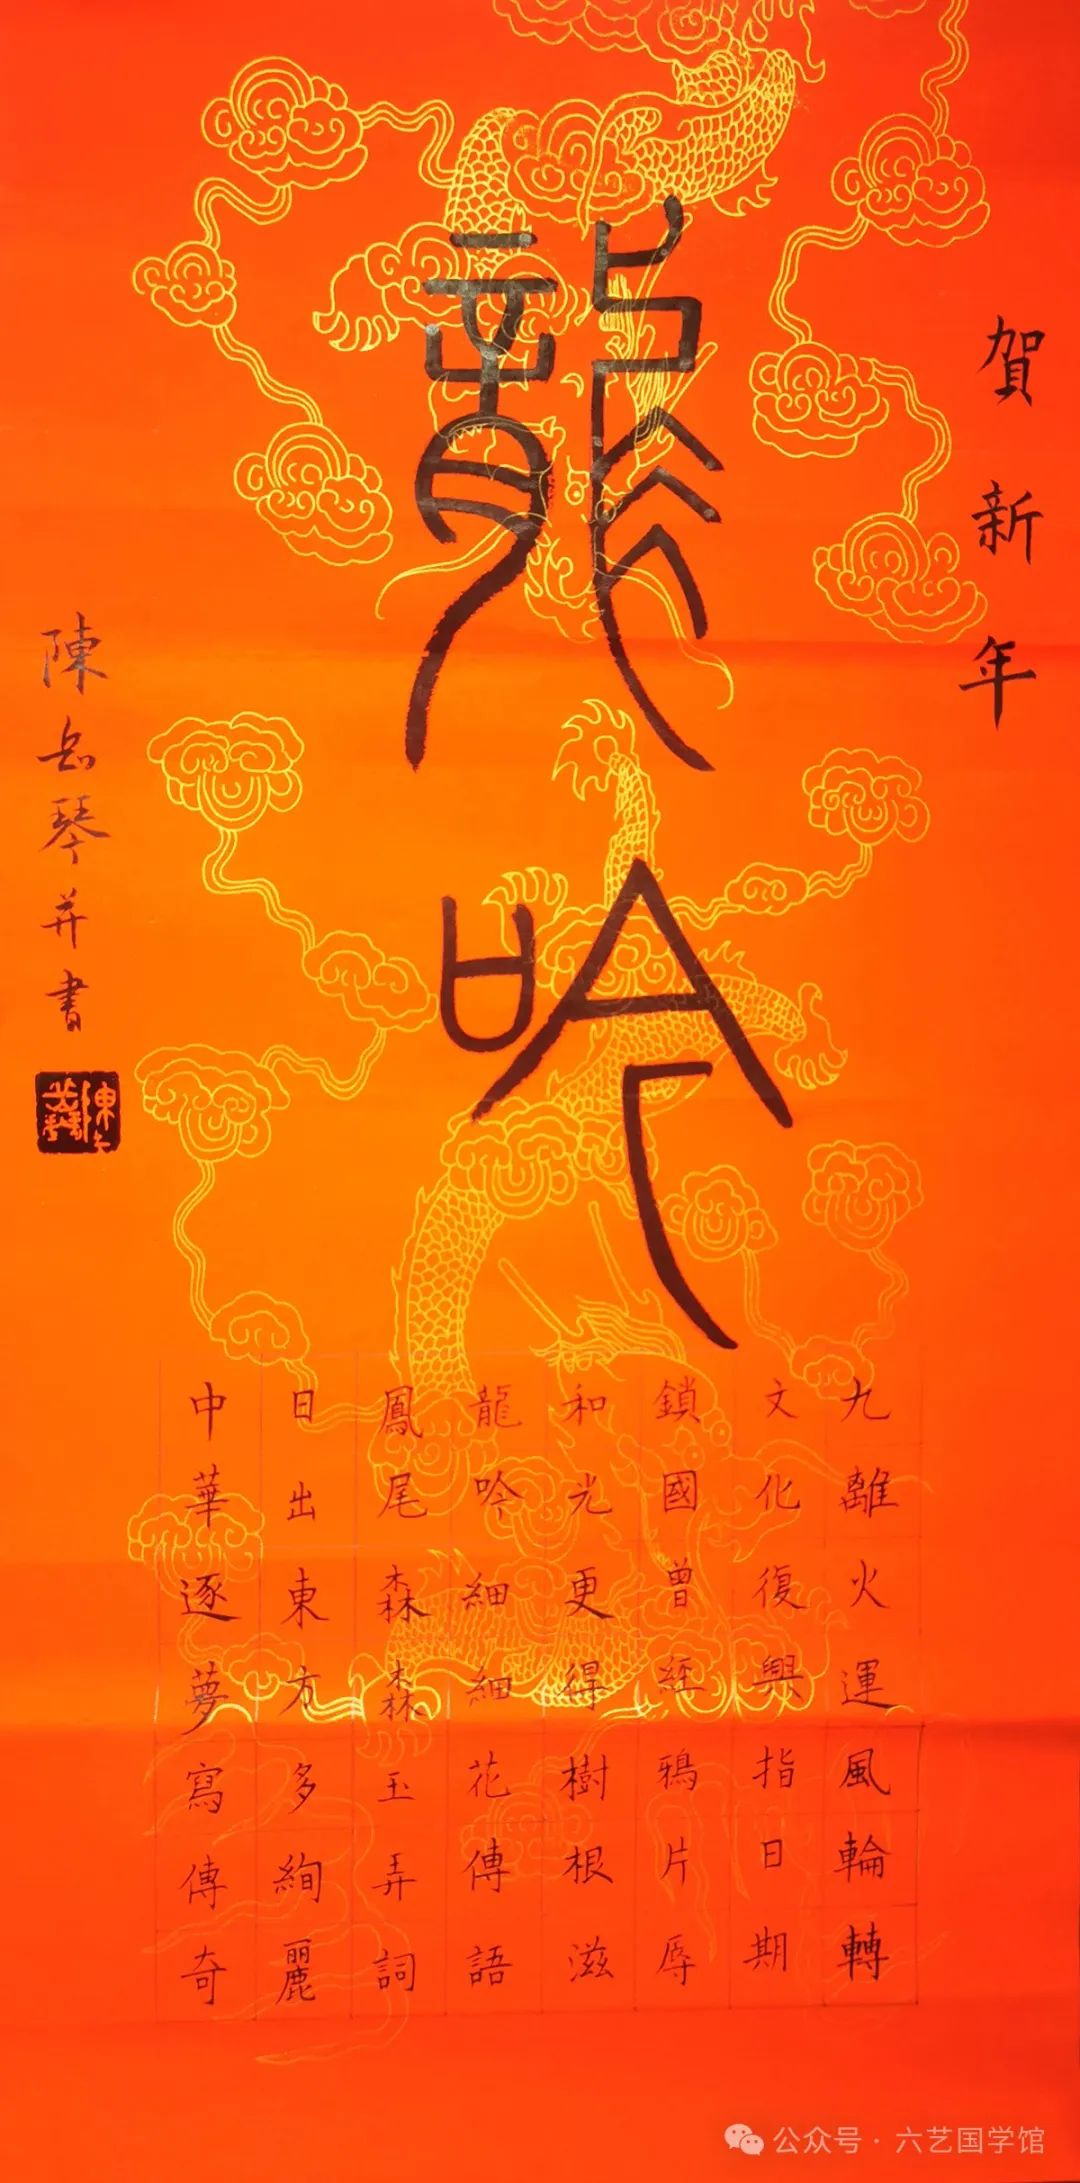 賀新年
龍吟
九離火運風輪轉
文化復興指日期
鎖國曾經鴉片辱
和光更得樹根滋
龍吟細細花傳語
鳳尾森森玉弄詞
日出東方多絢麗
中華逐夢寫傳奇
陳岳琴并書
公众号·六艺国学馆